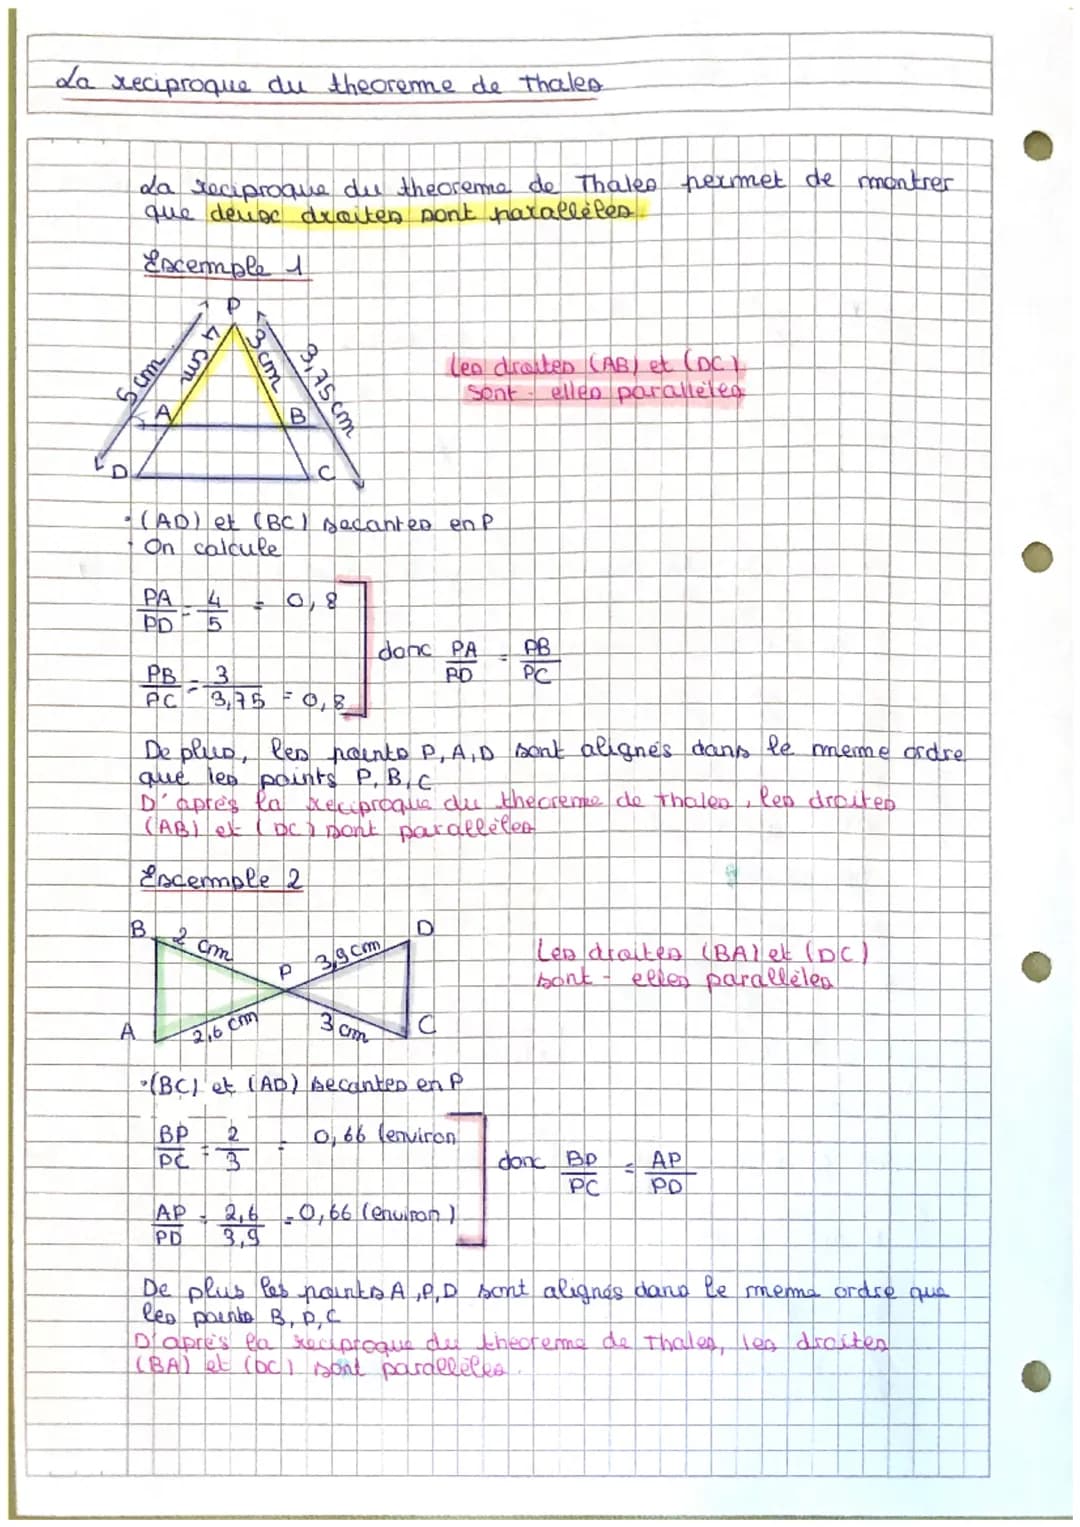 La reciproque du theoreme de Thales
La reciproque du theoreme de Thales permet de montrer
que deux droites sont parallèles.
Exemple 1
P
5 cm
4 cm
3 cm
3,75 cm
A
B
D
C
Les droites (AB) et (DC)
sont - elles paralleles
• (AD) et (BC) secantes en P
• On calcule
PA/PD = 4/5 = 0,8
donc PA/PD = PB/PC
PB/PC = 3/3,75 = 0,8
De plus, les points P, A, D sont alignés dans le meme ordre
que les points P, B, C
D'après la reciproque du theoreme de Thales, les droites
(AB) et (DC) sont parallèles
Exemple 2
B
2 cm
D
3,9 cm
P
A
2,6 cm
3 cm
C
Les droites (BA) et (DC)
sont - elles parallèles
• (BC) et (AD) secantes en P
BP/PC = 2/3 = 0,66 (environ
donc BP/PC = AP/PD
AP/PD = 2,6/3,9 = 0,66 (environ)
De plus les points A, P, D sont alignés dans le meme ordre que
les points B, P, C
D'après la reciproque du theoreme de Thales, les droites
(BA) et (DC) sont parallèles.